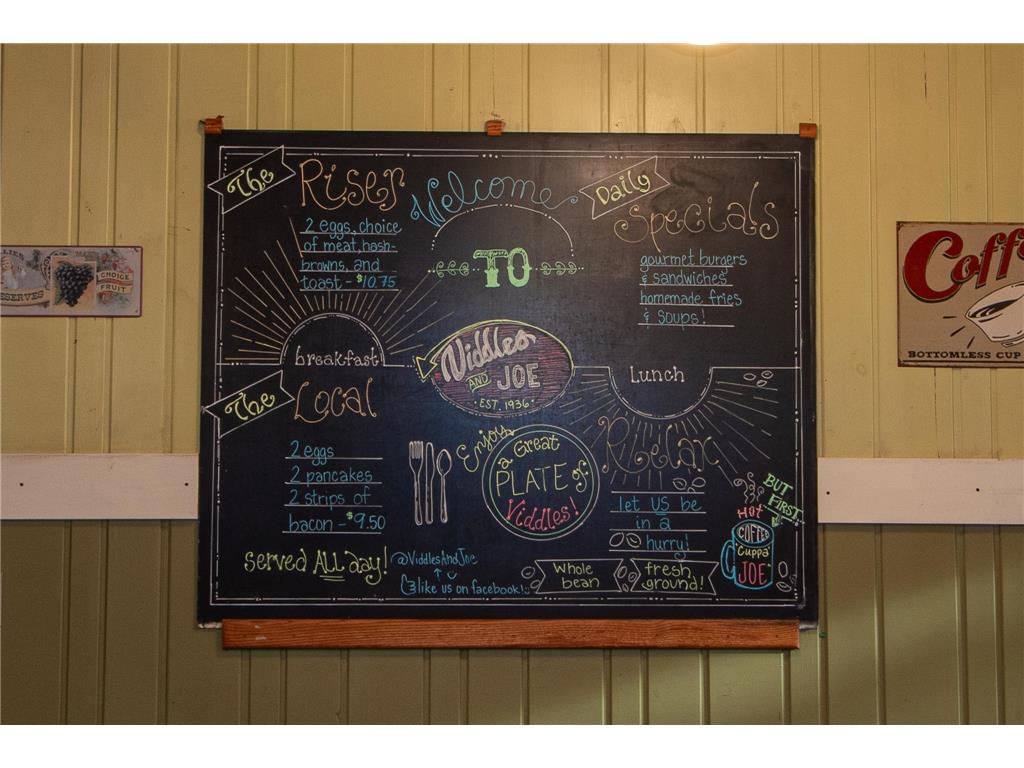 The Riser
2 eggs, choice
of meat, hash-
browns, and
toast - $10.75
breakfast
The Local
2 eggs
2 pancakes
2 strips of
bacon - $9.50
served ALL day!
Welcome
TO
Viddles
AND JOE
EST. 1936
Enjoy
a Great
PLATE of
Viddles!
@ViddlesAndJoe
like us on facebook!
Daily
Specials
gourmet burgers
& sandwiches
homemade fries
& soups!
Lunch
Relax
let US be
in a
hurry!
Whole
bean
fresh
ground!
BUT
FIRST
HOT
COFFEE
"Cuppa"
JOE
CHOICE
FRUIT
Coff
BOTTOMLESS CUP